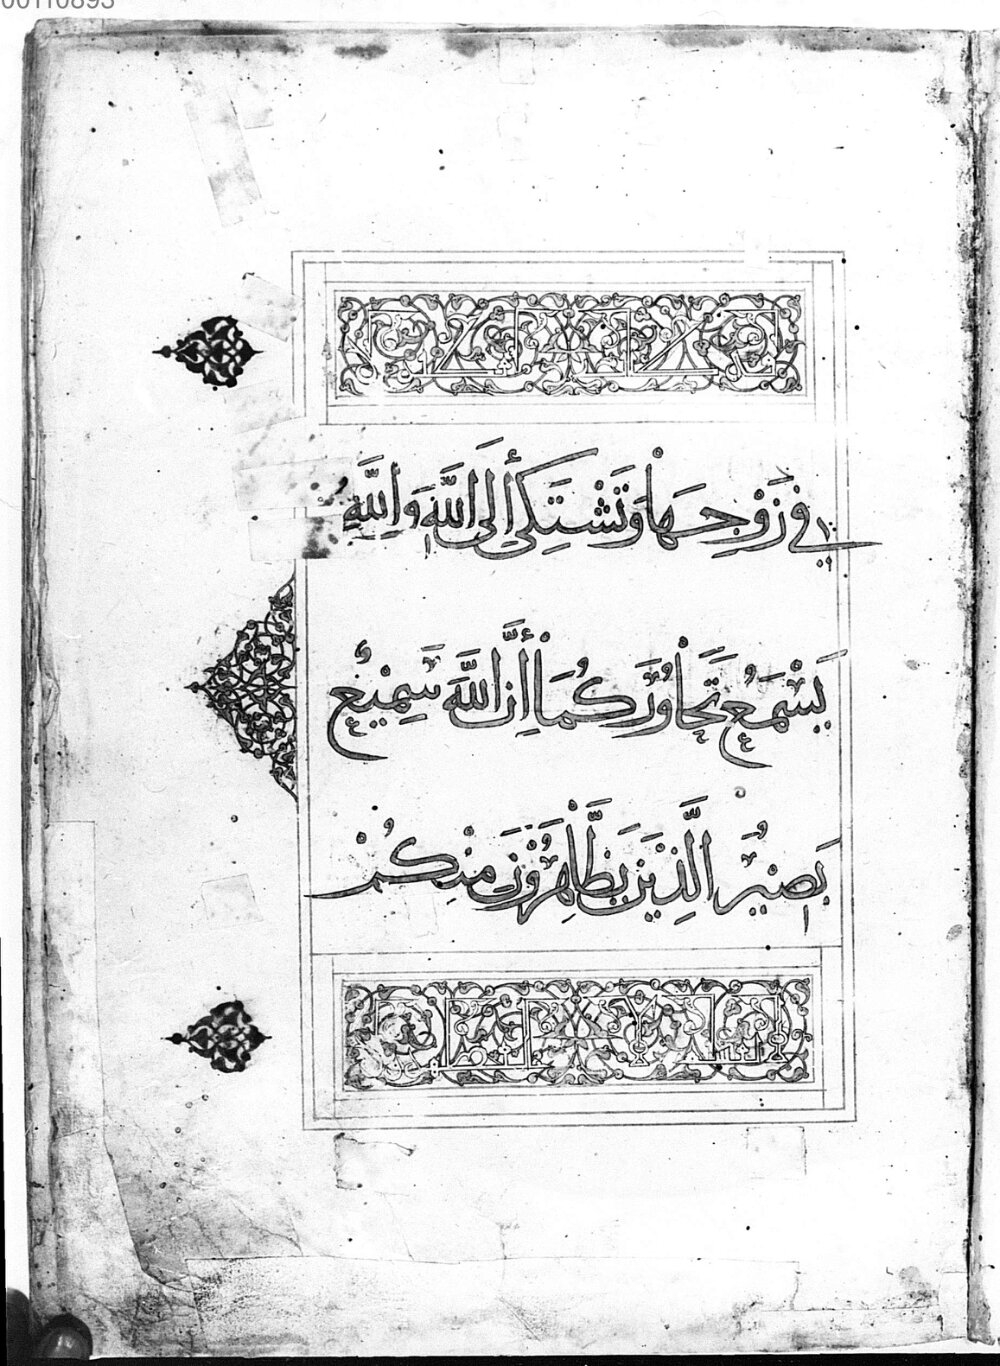 00110893
في زَوْجِهَا وَتَشْتَكِي إِلَى اللَّهِ وَاللَّهُ
يَسْمَعُ تَحَاوُرَكُمَا إِنَّ اللَّهَ سَمِيعٌ
بَصِيرٌ الَّذِينَ يَظَّاهَرُونَ مِنْكُمْ